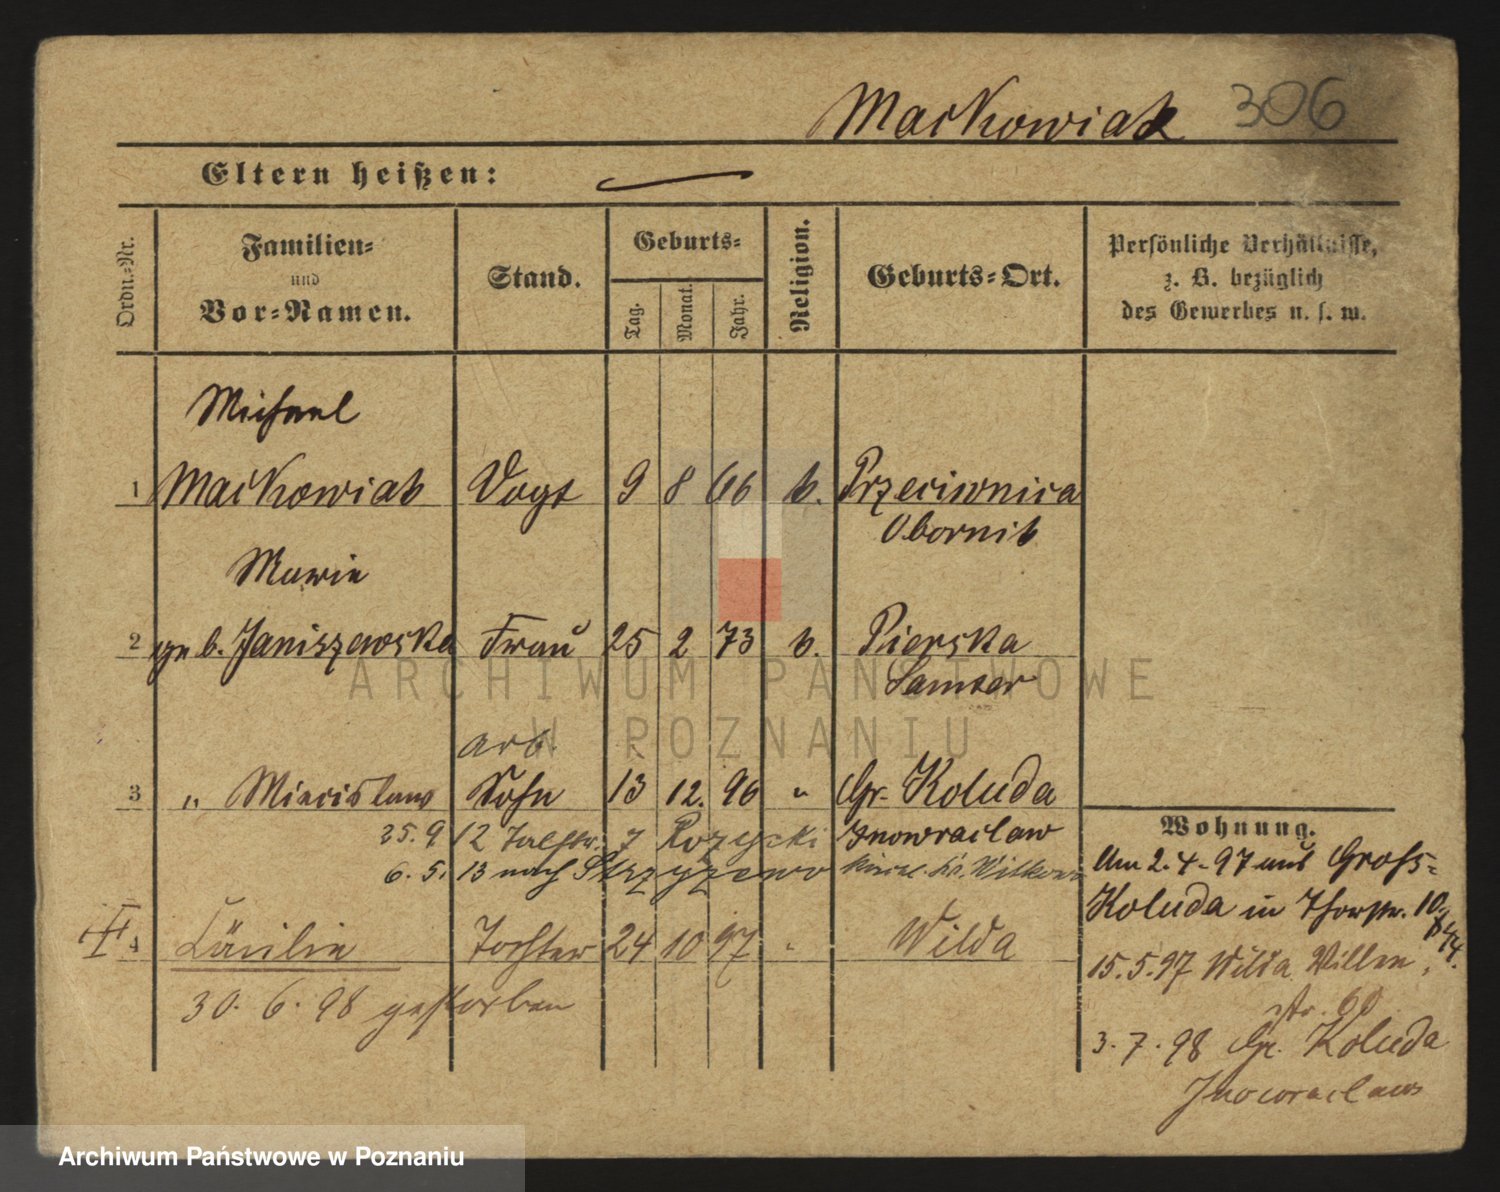 Mackowiak 306
Eltern heißen:
Ordn.-Nr.
Familien-
und
Vor-Namen.
Stand.
Geburts-
Tag.
Monat.
Jahr.
Religion.
Geburts-Ort.
Persönliche Verhältnisse,
z. B. bezüglich
des Gewerbes u. s. w.
Michael
1 Mackowiak Vogt 9 8 66 k. Przeciwnica
Obornik
Marie
2 geb. Janiszewska Frau 25 2 73 k. Pierska
Samter
arb.
3 " Miecislaus Sohn 13 12. 96 " Gr. Koluda
25. 9 12 7 Rozycki Inowraclaw
6. 5. 13 nach Strzyzewo Witkowo
4 Cäcilie Tochter 24 10 97 " Wilda
30. 6. 98 gestorben
Wohnung.
Am 2. 4. 97 aus Groß-
Koluda in Thorstr. 10
15. 5. 97 Wilda Villen
str. 60
3. 7. 98 Gr. Koluda
Inowraclaw
ARCHIWUM PAŃSTWOWE
W POZNANIU
Archiwum Państwowe w Poznaniu